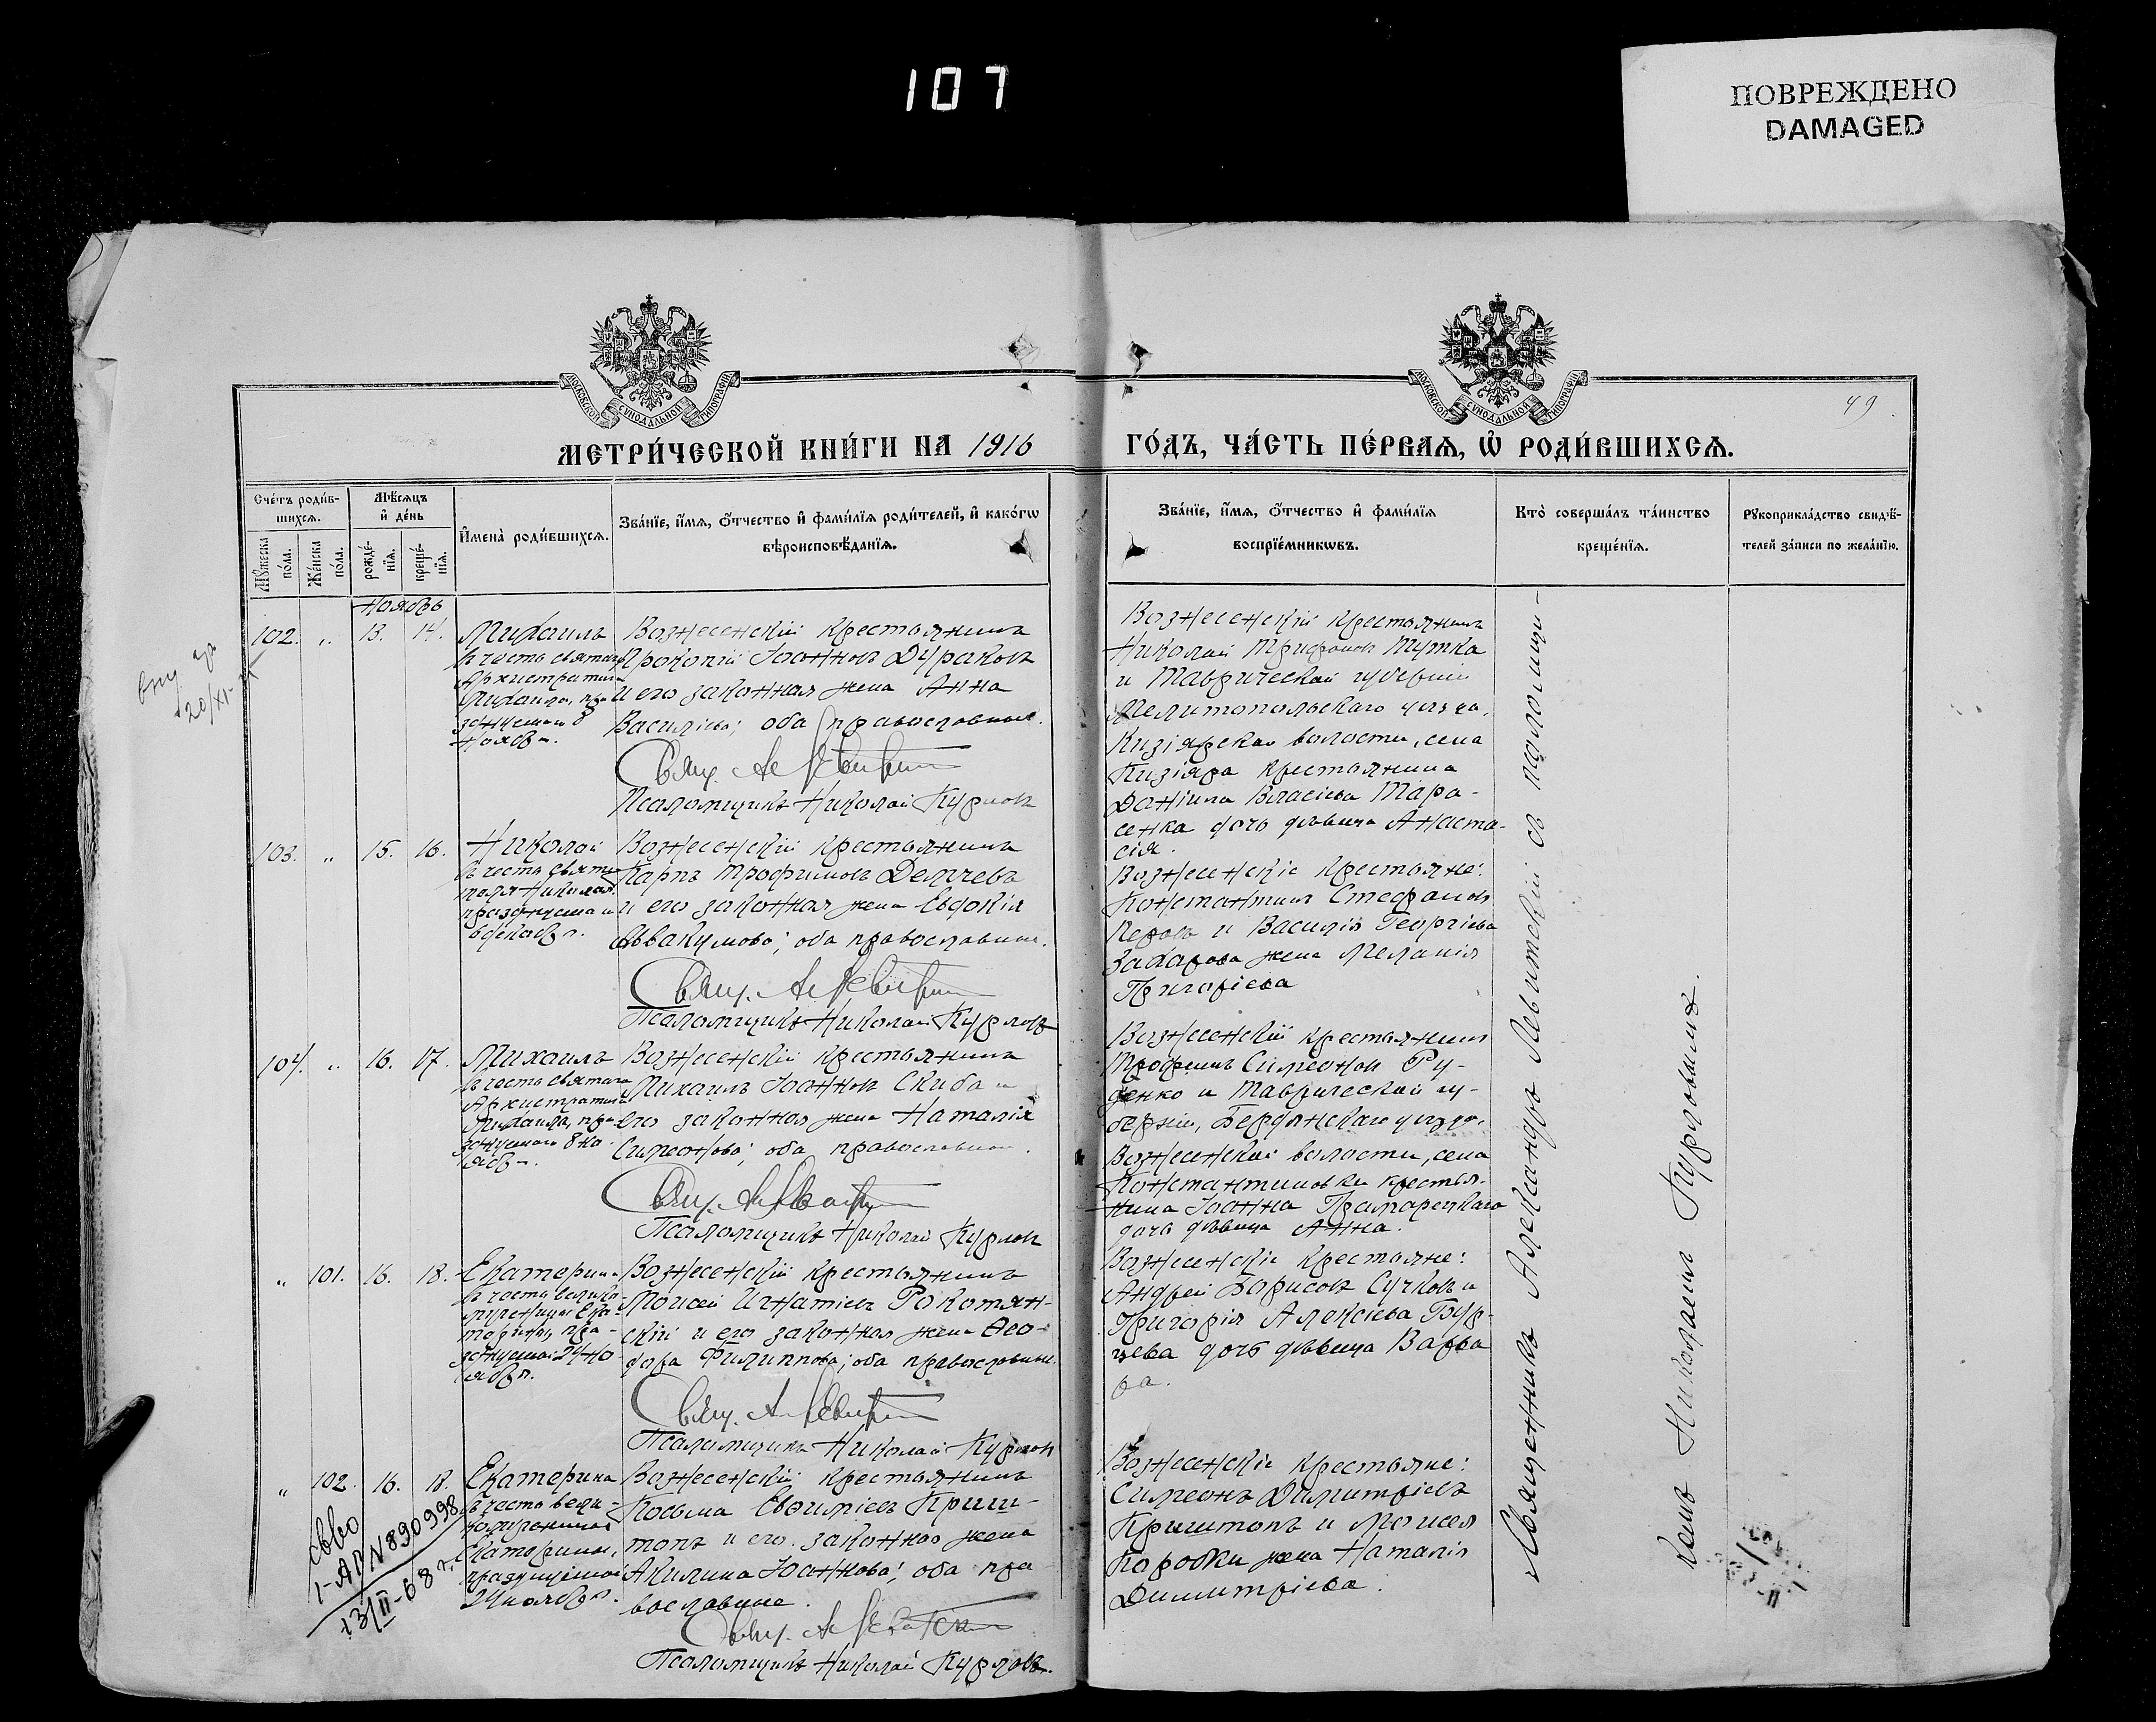 107
ПОВРЕЖДЕНО
DAMAGED
МОСКОВСКОЙ СѴНОДАЛЬНОЙ ТИПОГРАФІИ
МОСКОВСКОЙ СѴНОДАЛЬНОЙ ТИПОГРАФІИ
49
МЕТРИ́ЧЕСКОЙ КНИ́ГИ НА 1916
ГО́ДЪ, ЧА́СТЬ ПЕ́РВАѦ, Ѡ҆ РОДИ́ВШИХСѦ.
Сче́тъ роди́в-
шихсѧ.
Мꙋ́жеска по́ла.
Же́нска по́ла.
Мѣ́сѧцъ
и҆ де́нь
рожде́-
нїѧ.
креще́-
нїѧ.
И҆мена̀ роди́вшихсѧ.
Зва́нїе, и҆́мѧ, ѻ҆́тчество и҆ фами́лїѧ роди́телей, и҆ како́гѡ
вѣроисповѣ́данїѧ.
Зва́нїе, и҆́мѧ, ѻ҆́тчество и҆ фами́лїѧ
воспрїе́мникѡвъ.
Кто̀ соверша́лъ та́инство
креще́нїѧ.
Рꙋкоприкла́дство свидѣ́-
телей за́писи по жела́нїю.
Ноябрь
102. „ 13. 14.
Михаилъ
въ честь святаго
Архистратига
Михаила, пра
зднуемаго 8
Ноября.
Вознесенскій крестьянинъ
Прокопій Іоанновъ Дураковъ
и его законная жена Анна
Васильева; оба православные.
Свящ. А. Левитскій
Псаломщикъ Николай Курловъ
Вознесенскій крестьянинъ
Николай Трифоновъ Тутка
и Таврической губерніи
Мелитопольскаго уѣзда,
Кизіярской волости, села
Кизіяра крестьянина
Даніила Власіева Тара-
сенка дочь дѣвица Анаста-
сія.
103. „ 15. 16.
Николай
въ честь Святи
теля Николая,
празднуемаго
6 декабря.
Вознесенскій крестьянинъ
Карпъ Трофимовъ Демчевъ
и его законная жена Евдокія
Аввакумова; оба православные.
Свящ. А. Левитскій
Псаломщикъ Николай Курловъ
Вознесенскіе крестьяне:
Константинъ Стефановъ
и Василія Георгіева
Захарова жена Меланія
Григоріева
104. „ 16. 17.
Михаилъ
въ честь Святаго
Архистратига
Михаила, пра-
зднуемаго 8 но-
ября.
Вознесенскій крестьянинъ
Михаилъ Іоанновъ Скиба и
его законная жена Наталія
Симеонова; оба православные.
Свящ. А. Левитскій
Псаломщикъ Николай Курловъ
Вознесенскій крестьянинъ
Трофимъ Симеоновъ Ру-
денко и Таврической гу-
берніи, Бердянскаго уѣзда,
Вознесенской волости, села
Константиновки крестья-
нина Іоанна Грамарецкаго
дочь дѣвица Анна.
„ 101. 16. 18.
Екатерина
въ честь велико-
мученицы Ека-
терины, пра-
зднуемой 24 но-
ября.
Вознесенскій крестьянинъ
Моисей Игнатіевъ Рокотян-
скій и его законная жена Ѳео-
дора Филиппова; оба православные.
Свящ. А. Левитскій
Псаломщикъ Николай Курловъ
Вознесенскіе крестьяне:
Андрей Борисовъ Сучковъ и
Григорія Алексіева Бур-
цева дочь дѣвица Варва
ра.
„ 102. 16. 18.
Екатерина
въ честь вели-
комученицы
Екатерины,
празднуемой
24 ноября.
Вознесенскій крестьянинъ
Косьма Евѳиміевъ Криш-
топъ и его законная жена
Акилина Іоаннова; оба пра
вославные.
Свящ. А. Левитскій
Псаломщикъ Николай Курловъ.
Вознесенскіе крестьяне:
Симеонъ Димитріевъ
Криштопъ и Моисея
Коробки жена Наталія
Димитріева.
Священникъ Александръ Левитскій съ псаломщи-
комъ Николаемъ Курловымъ.
20/XI-
св-во
I-АР №890998
13/II-68 г.